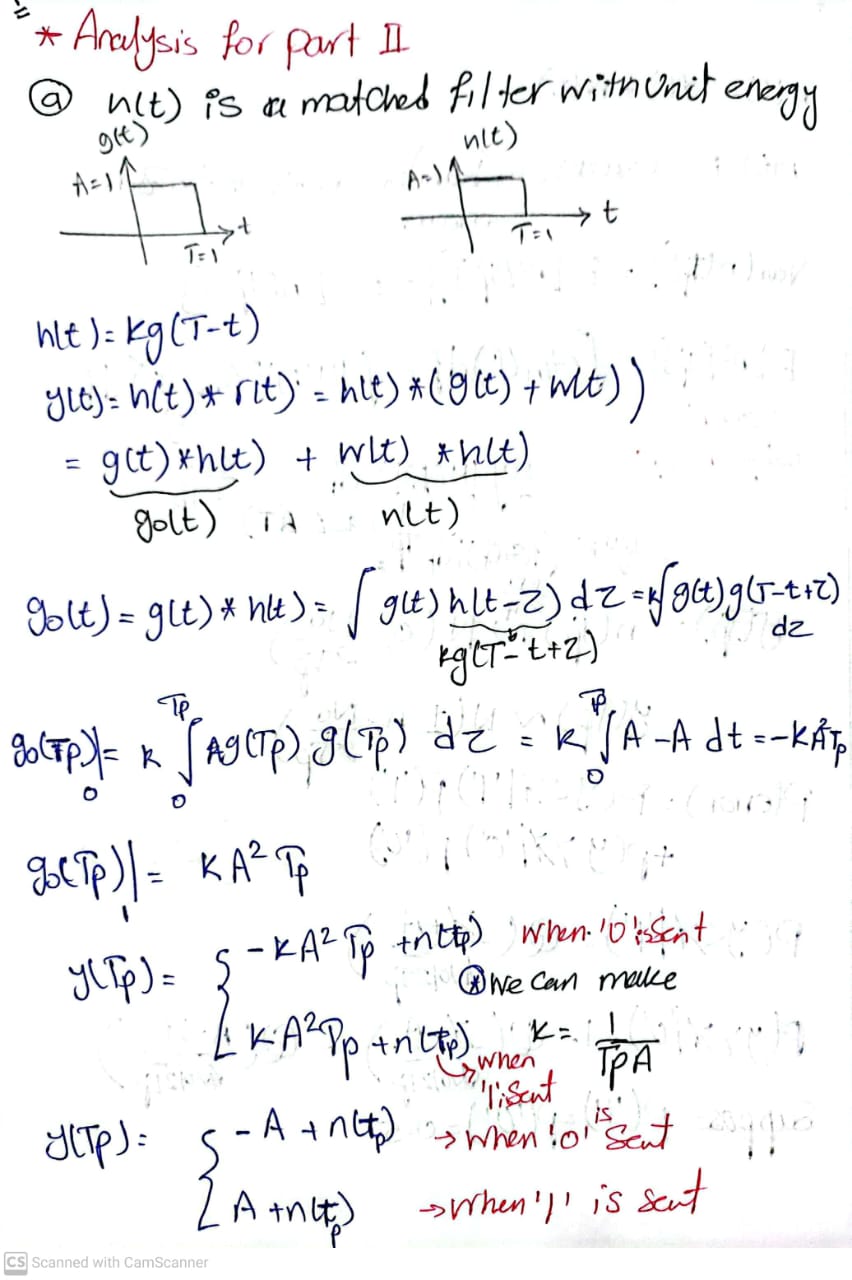 * Analysis for part II
ⓐ h(t) is a matched filter with unit energy
g(t) h(t)
A=1 A=1
t t
T=1 T=1
h(t) = kg(T-t)
y(t) = h(t) * r(t) = h(t) * (g(t) + w(t))
= g(t) * h(t) + w(t) * h(t)
go(t) n(t)
go(t) = g(t) * h(t) = ∫ g(t) h(t-z) dz = k∫ g(t) g(T-t+z) dz
kg(T-t+z)
go(Tp)|0 = k ∫0^Tp Ag(Tp) g(Tp) dz = k ∫0^Tp A -A dt = -kA²Tp
go(Tp)|1 = KA² Tp
y(Tp) = { -KA² Tp + n(tp) when '0' is Sent
⊛ We can make
KA²Tp + n(tp) K = 1/TpA
↳ when
'1' is Sent
y(Tp) = { -A + n(tp) → when '0' is Sent
A + n(tp) → when '1' is sent
CS Scanned with CamScanner